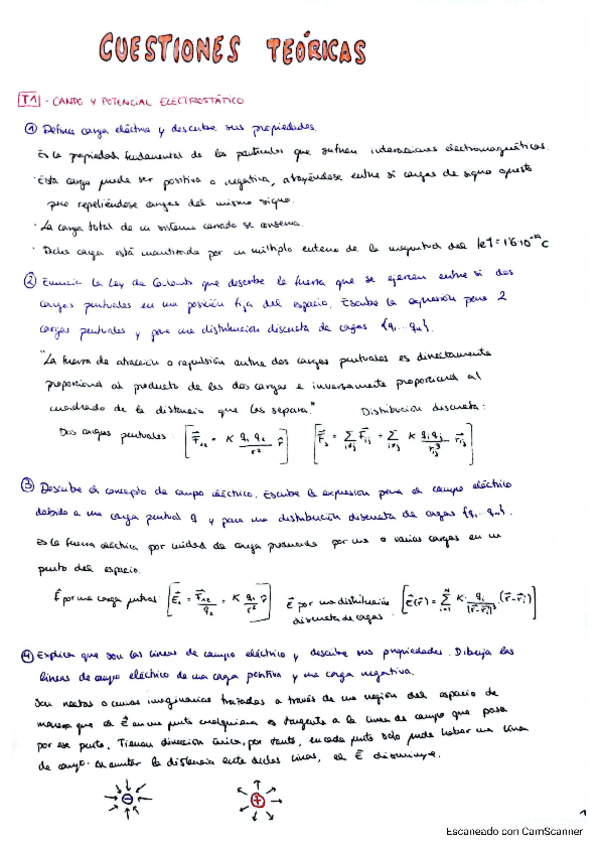 CUESTIONES TEÓRICAS
T1 - CAMPO Y POTENCIAL ELECTROSTÁTICO
① Define carga eléctrica y describe sus propiedades.
Es la propiedad fundamental de las partículas que sufren interacciones electromagnéticas.
· Esta carga puede ser positiva o negativa, atrayéndose entre sí cargas de signo opuesto
pero repeliéndose cargas del mismo signo.
· La carga total de un sistema cerrado se conserva.
· Dicha carga está cuantizada por un múltiplo entero de la magnitud del |e⁻| = 1'6·10⁻¹⁹ C
② Enuncia la Ley de Coulomb que describe la fuerza que se ejercen entre sí dos
cargas puntuales en una posición fija del espacio. Escribe la expresión para 2
cargas puntuales y para una distribución discreta de cargas {q₁...qₙ}.
"La fuerza de atracción o repulsión entre dos cargas puntuales es directamente
proporcional al producto de las dos cargas e inversamente proporcional al
cuadrado de la distancia que las separa." Distribución discreta:
Dos cargas puntuales: [F⃗₁₂ = K q₁ q₂ / r² r̂] [F⃗ⱼ = Σ i≠j F⃗ᵢⱼ = Σ i≠j K qᵢ qⱼ / rᵢⱼ³ r⃗ᵢⱼ]
③ Describe el concepto de campo eléctrico. Escribe la expresión para el campo eléctrico
debido a una carga puntual q y para una distribución discreta de cargas {q₁...qₙ}.
Es la fuerza eléctrica por unidad de carga producida por una o varias cargas en un
punto del espacio.
E⃗ por una carga puntual: [E⃗₁ = F⃗₁₂ / q₂ = K q₁ / r² r̂] E⃗ por una distribución [E⃗(r⃗) = Σ i=1 N K · qᵢ / |r⃗-r⃗ᵢ|³ (r⃗-r⃗ᵢ)]
discreta de cargas:
④ Explica que son las líneas de campo eléctrico y describe sus propiedades. Dibuja las
líneas de campo eléctrico de una carga positiva y una carga negativa.
Son rectas o curvas imaginarias trazadas a través de una región del espacio de
manera que el E⃗ en un punto cualquiera es tangente a la línea de campo que pasa
por ese punto. Tienen dirección única, por tanto, en cada punto solo puede haber una línea
de campo. Al aumentar la distancia entre dichas líneas, el E⃗ disminuye.
⊖ ⊕
1
Escaneado con CamScanner